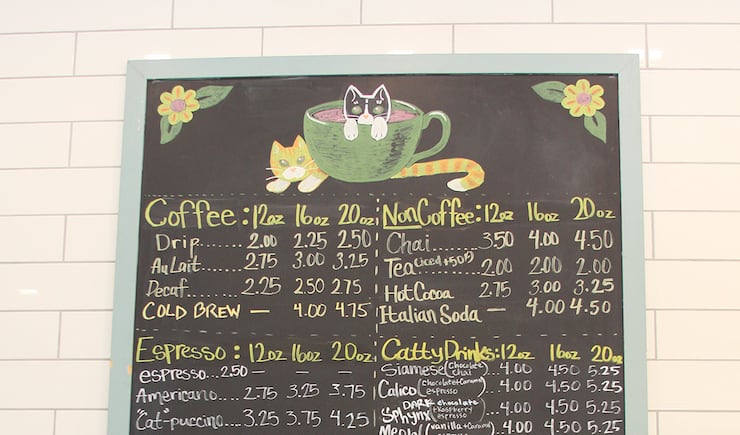 Coffee: 12oz 16oz 20oz
Drip....... 2.00 2.25 2.50
Au Lait..... 2.75 3.00 3.25
Decaf....... 2.25 2.50 2.75
COLD BREW — 4.00 4.75
NonCoffee: 12oz 16oz 20oz
Chai......... 3.50 4.00 4.50
Tea (iced +50¢) ..2.00 2.00 2.00
Hot Cocoa 2.75 3.00 3.25
Italian Soda — 4.00 4.50
Espresso: 12oz 16oz 20oz
espresso...2.50 — — —
Americano.... 2.75 3.25 3.75
"Cat"-puccino.... 3.25 3.75 4.25
Catty Drinks: 12oz 16oz 20oz
Siamese (Chocolate chai)...4.00 4.50 5.25
Calico (chocolate+Caramel espresso ...4.00 4.50 5.25
Sphynx (DARK chocolate +Raspberry espresso) ..4.00 4.50 5.25
(vanilla+Caramel ..4.00 4.50 5.25